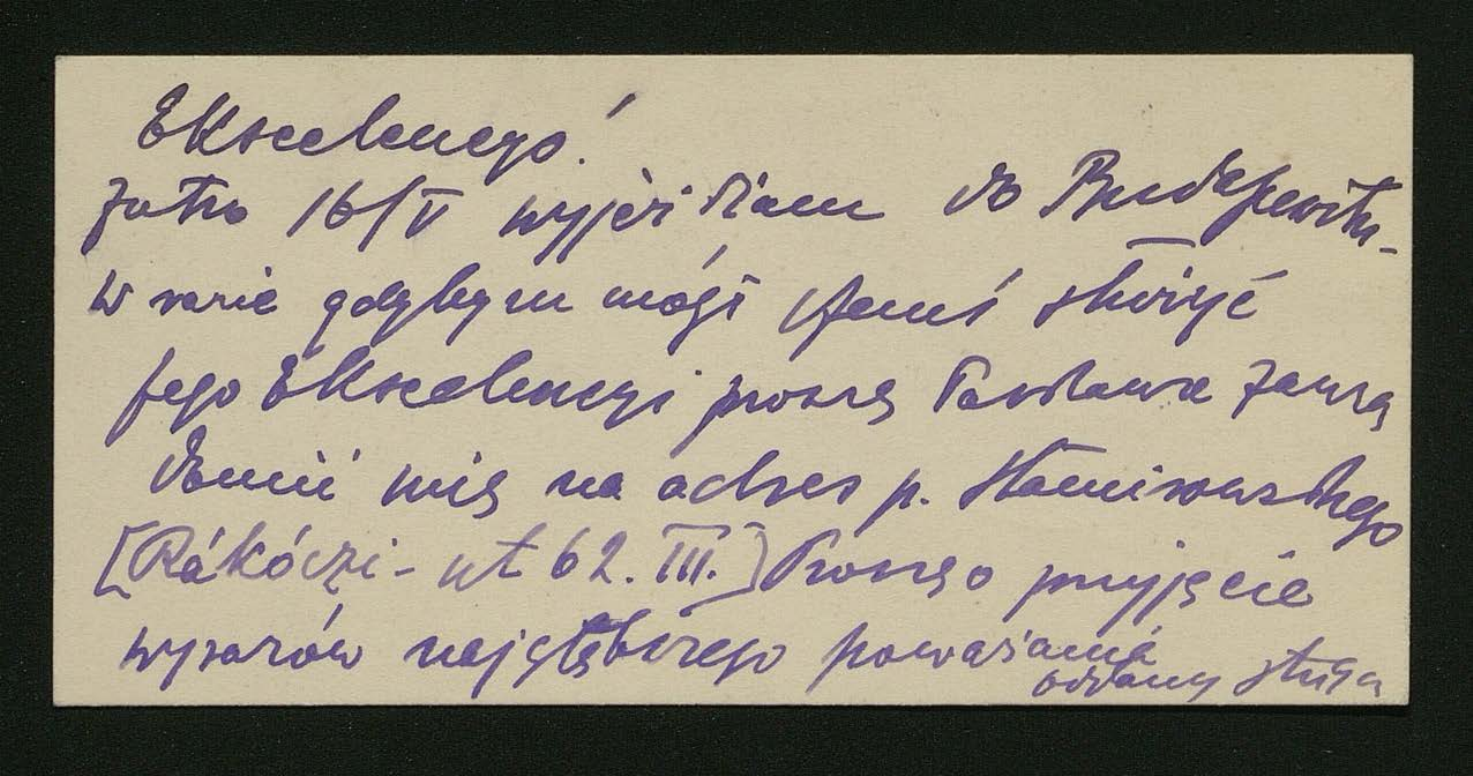 Ekscelencyo!
Jutro 16/V wyjeżdżam do Budapesztu-
W razie gdybym mógł czemś służyć
Jego Ekscelencyi proszę łaskawie zawia
domić mię na adres p.
[Rákóczi-ut 62. III.] Proszę o przyjęcie
wyrazów najgłębszego poważania
oddany sługa